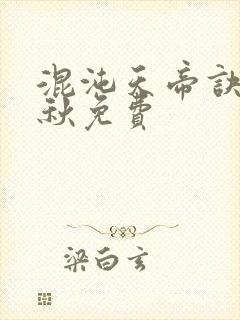 混沌天帝訣
秋免費
梁白玄